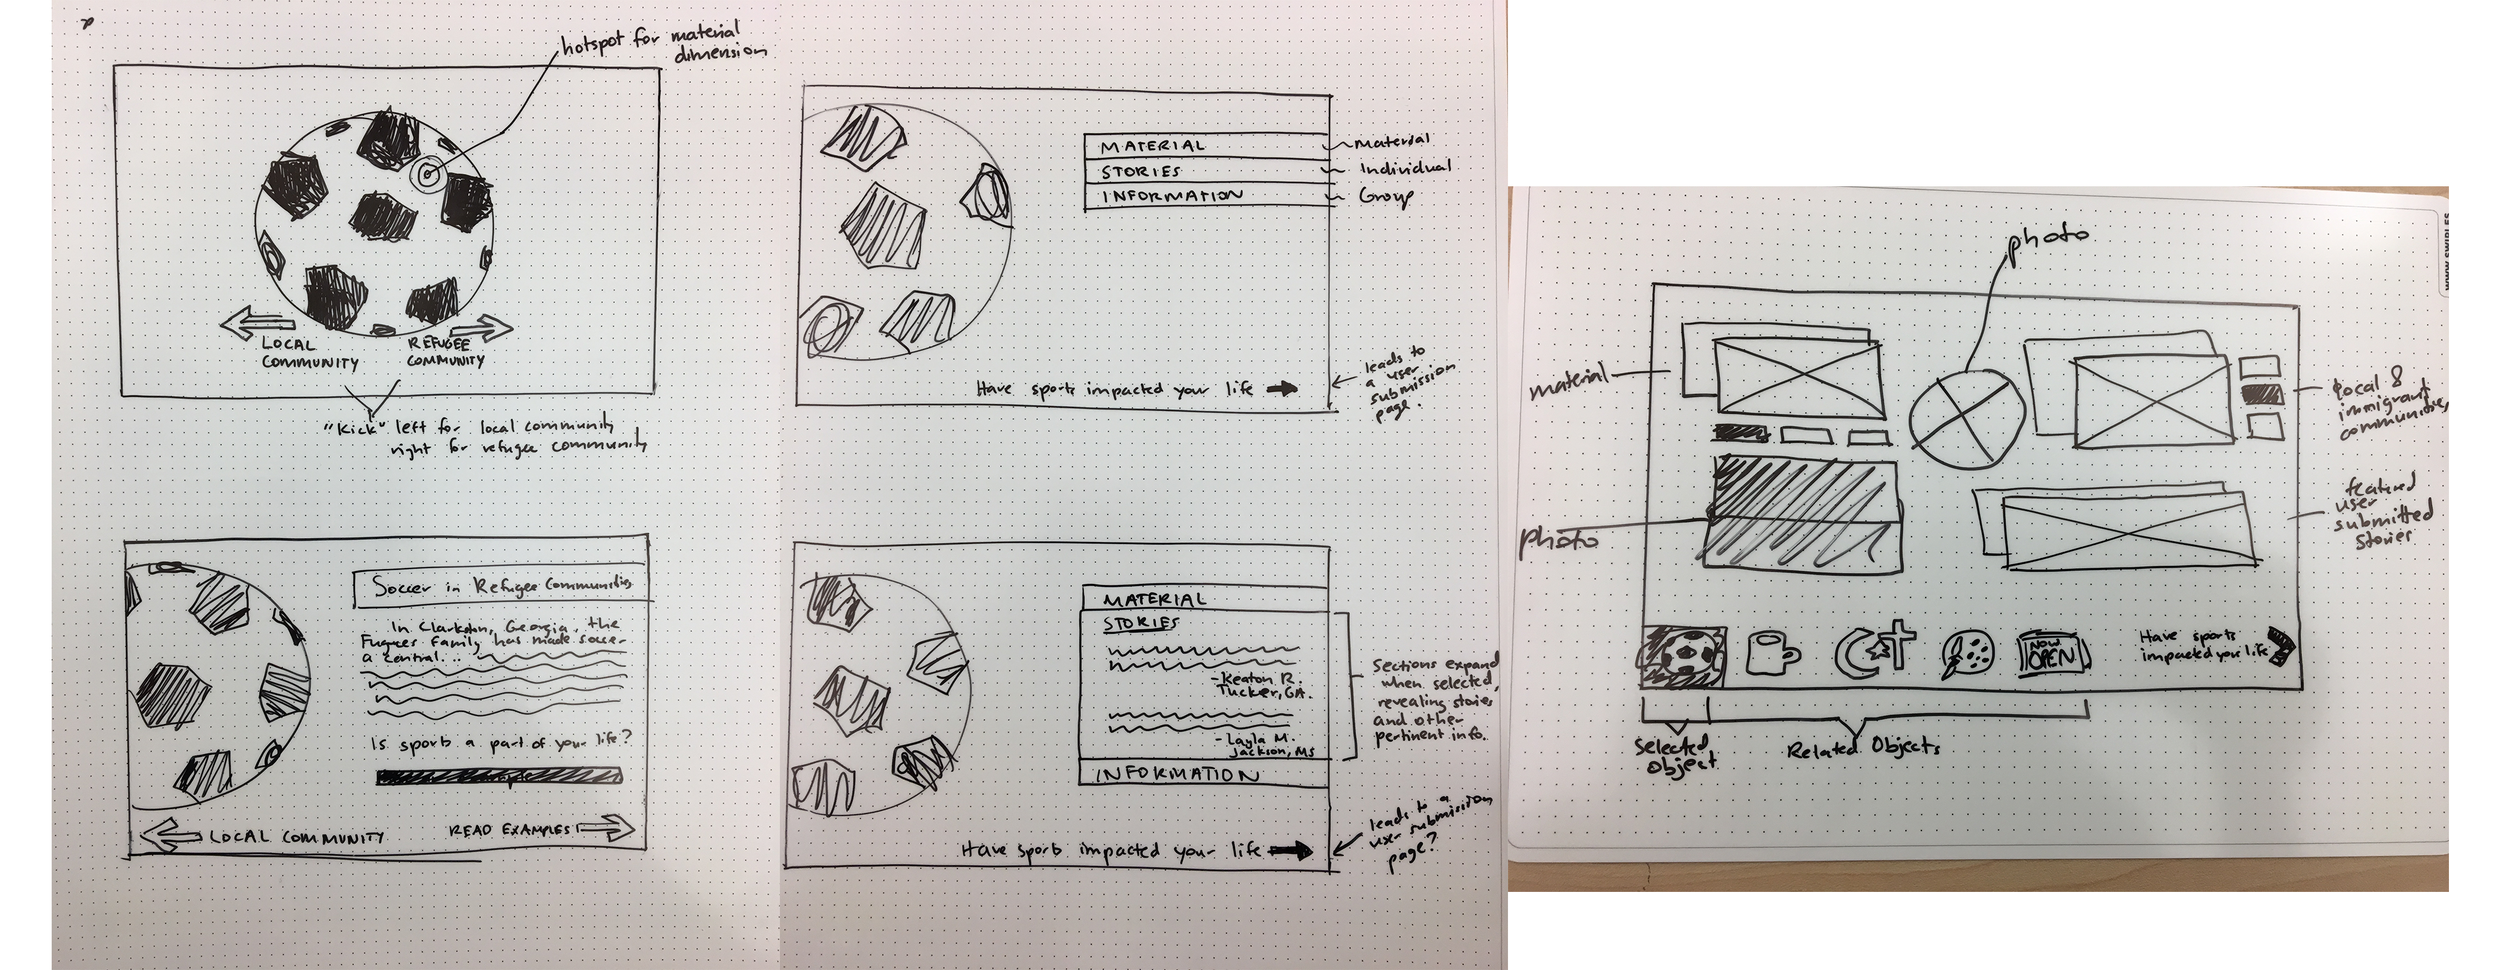 hotspot for material
dimension
LOCAL
COMMUNITY
REFUGEE
COMMUNITY
"Kick" left for local community
right for refugee community
Soccer in Refugee Communities
In Clarkston, Georgia, the
Fugees Family has made soccer
a central...
Is sports a part of your life?
LOCAL COMMUNITY
READ EXAMPLES
MATERIAL
STORIES
INFORMATION
material
Individual
Group
Have sports impacted your life
leads to
a user
submission
page.
MATERIAL
STORIES
-Keaton R.
Tucker, GA.
-Layla M.
Jackson, MS
INFORMATION
Sections expand
when selected,
revealing stories
and other
pertinent info.
Have sports impacted your life
leads to a
user submission
page?
WWW.SWIPI.ES
photo
material
local &
immigrant
communities
photo
featured
user
submitted
stories
NOW
OPEN
Have sports
impacted your life
Selected
Object
Related Objects